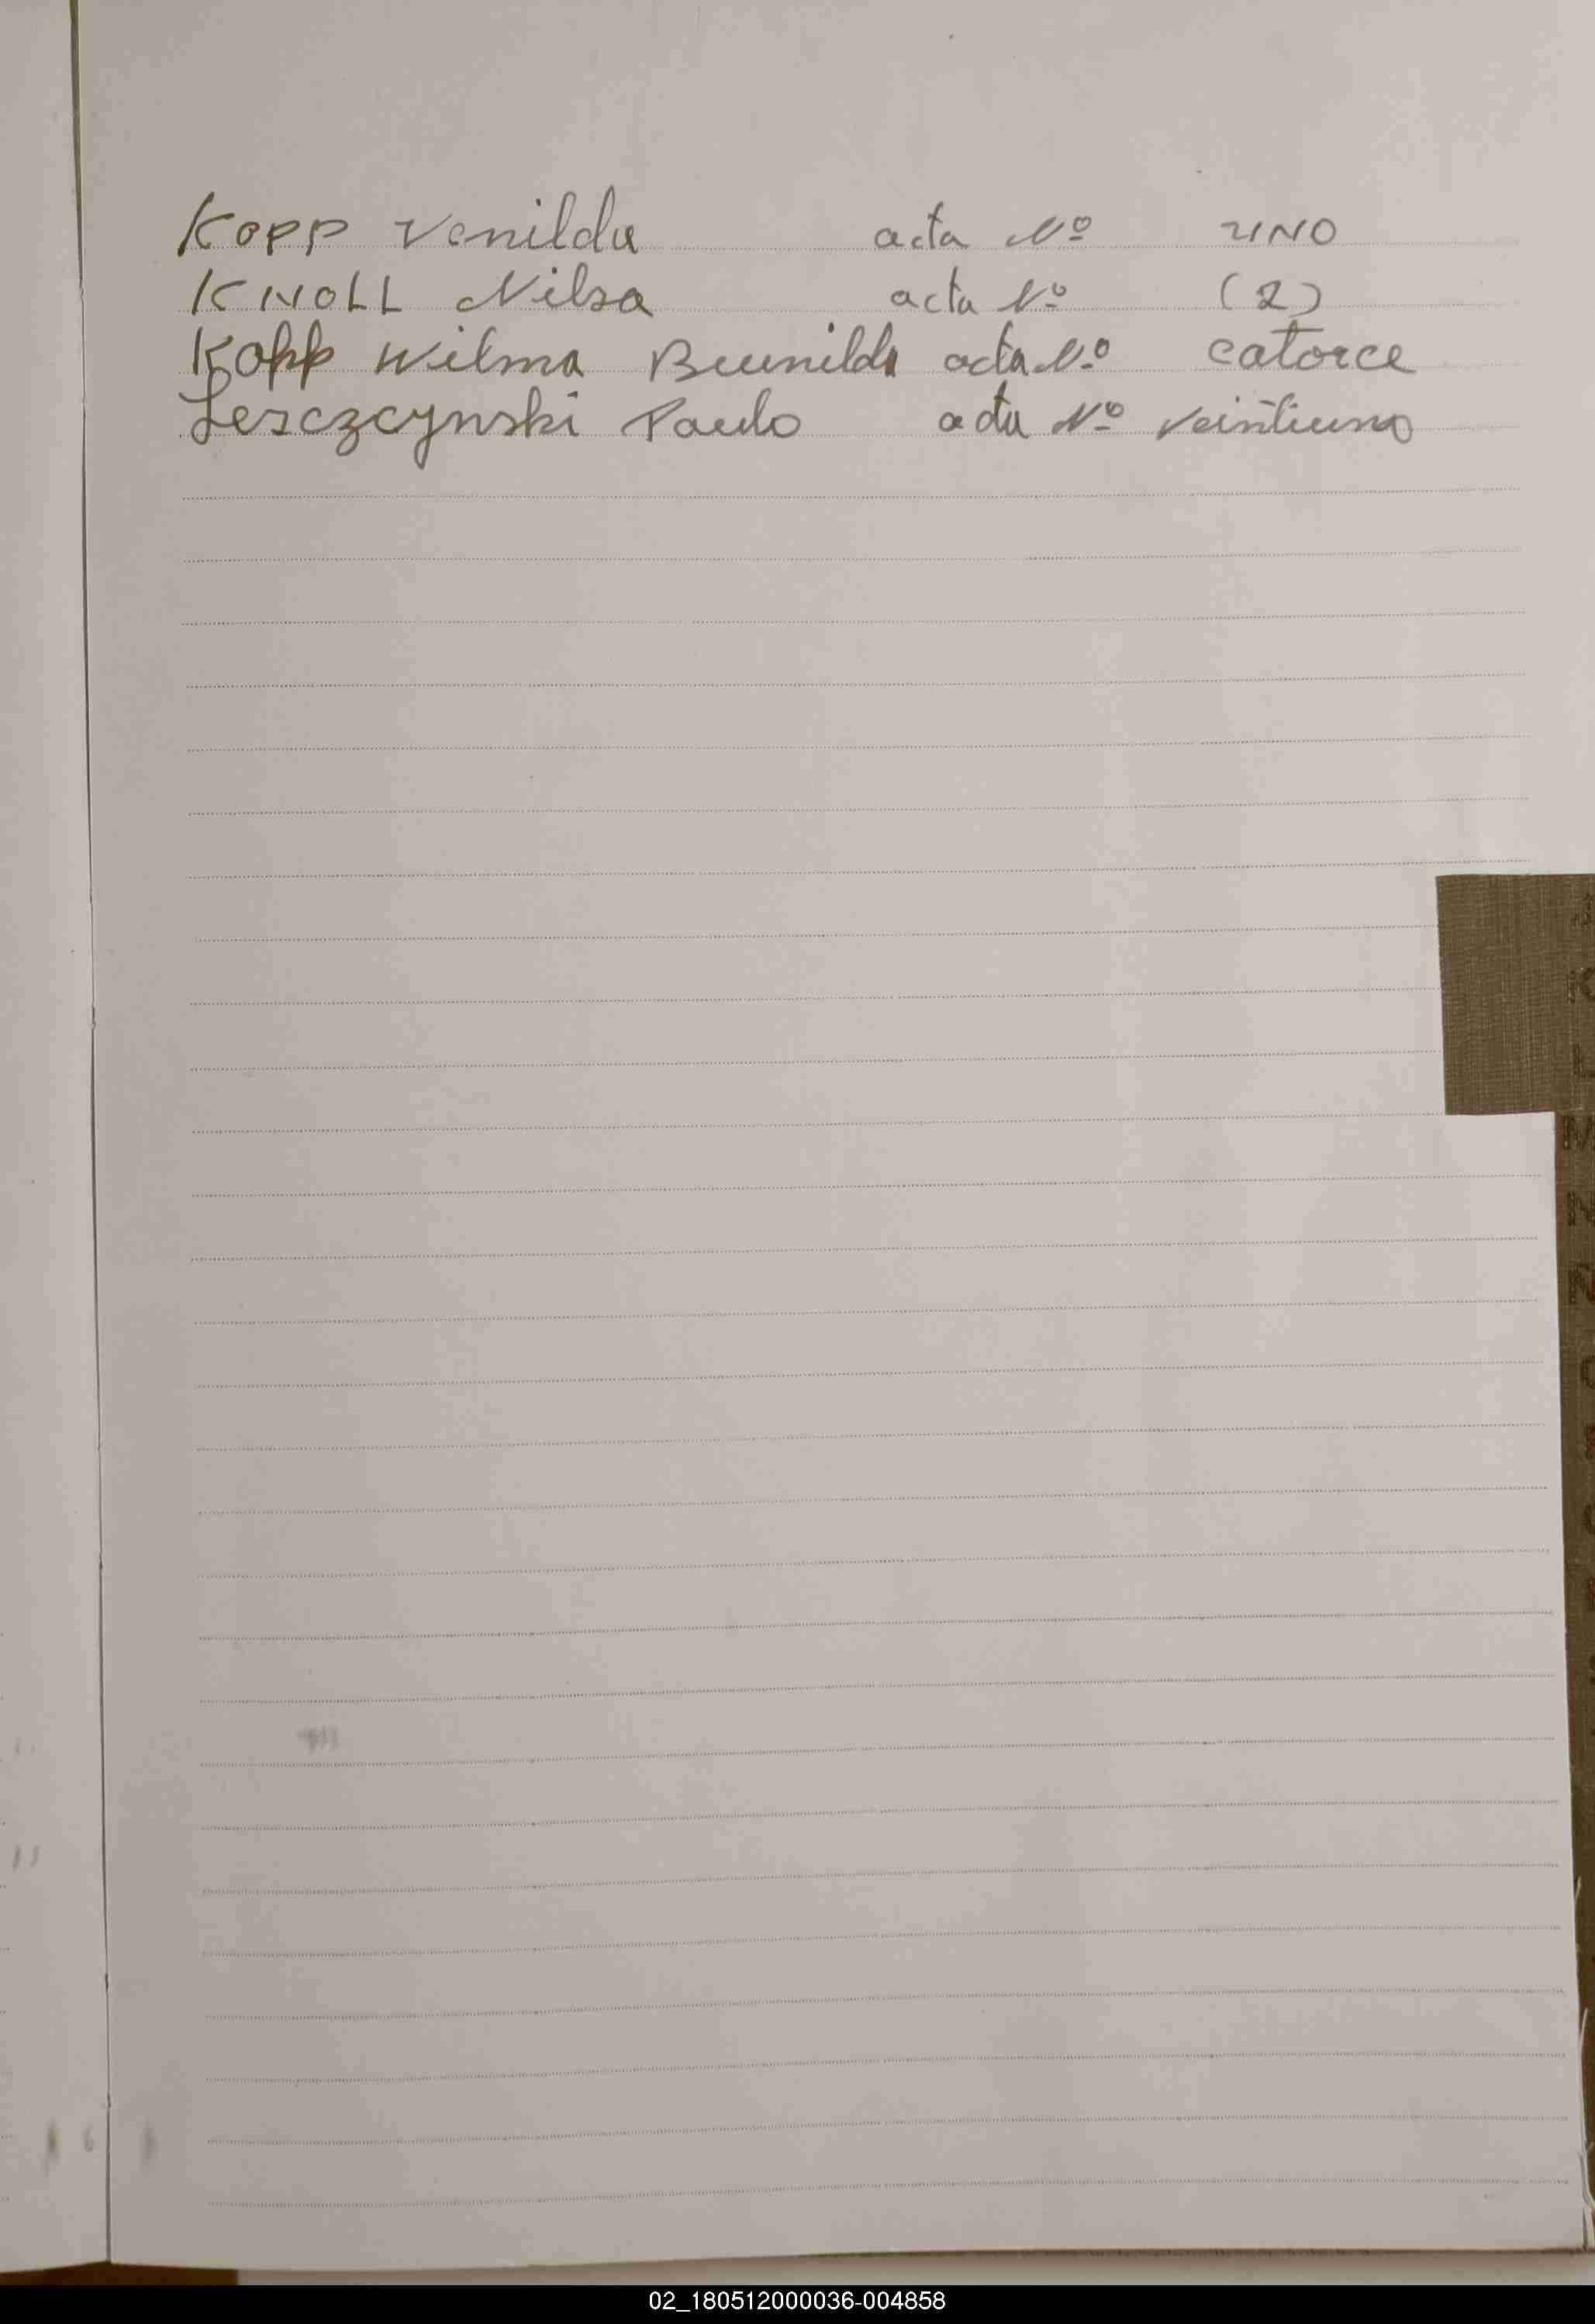 Kopp Venilda acta Nº UNO
KNOLL Nilsa acta Nº (2)
Kopp Wilma Brunilda acta Nº catorce
Leszczcynski Paulo acta Nº veintiuno
02_180512000036-004858